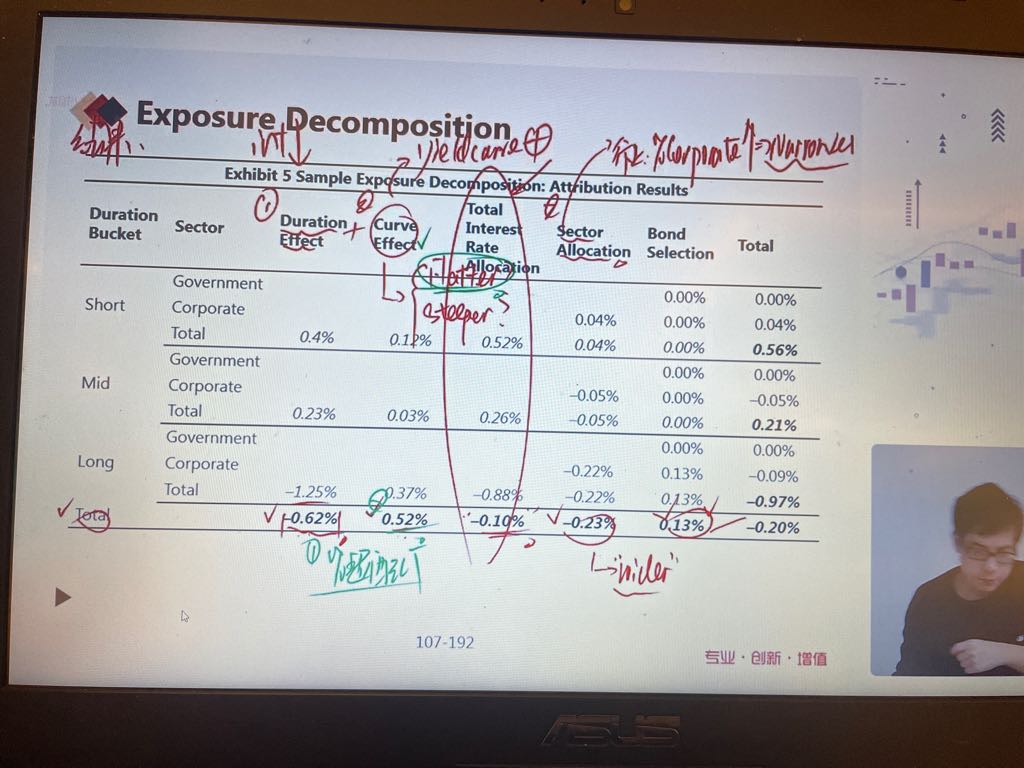 Exposure Decomposition
int↓
yield curve ⊕
Exhibit 5 Sample Exposure Decomposition: Attribution Results
Duration Bucket Sector Duration Effect + Curve Effect Total Interest Rate Allocation Sector Allocation Bond Selection Total
flatter
steeper?
Government 0.00% 0.00%
Short Corporate 0.04% 0.00% 0.04%
Total 0.4% 0.12% 0.52% 0.04% 0.00% 0.56%
Government 0.00% 0.00%
Mid Corporate –0.05% 0.00% –0.05%
Total 0.23% 0.03% 0.26% –0.05% 0.00% 0.21%
Government 0.00% 0.00%
Long Corporate –0.22% 0.13% –0.09%
Total –1.25% 0.37% –0.88% –0.22% 0.13% –0.97%
Total –0.62% 0.52% –0.10% –0.23% 0.13% –0.20%
"wider"
107-192
专业·创新·增值
ASUS